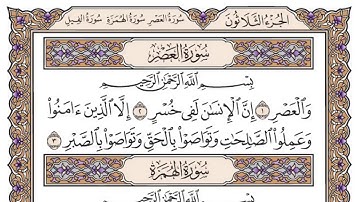 الجزء الثلاثون سورة العصر سورة الهمزة سورة الفيل
سُورَةُ العَصْرِ
بِسْمِ اللَّهِ الرَّحْمَٰنِ الرَّحِيمِ
وَالْعَصْرِ ١ إِنَّ الْإِنسَٰنَ لَفِى خُسْرٍ ٢ إِلَّا الَّذِينَ ءَامَنُوا۟
وَعَمِلُوا۟ الصَّٰلِحَٰتِ وَتَوَاصَوْا۟ بِالْحَقِّ وَتَوَاصَوْا۟ بِالصَّبْرِ ٣
سُورَةُ الهُمَزَةِ
بِسْمِ اللَّهِ الرَّحْمَٰنِ الرَّحِيمِ